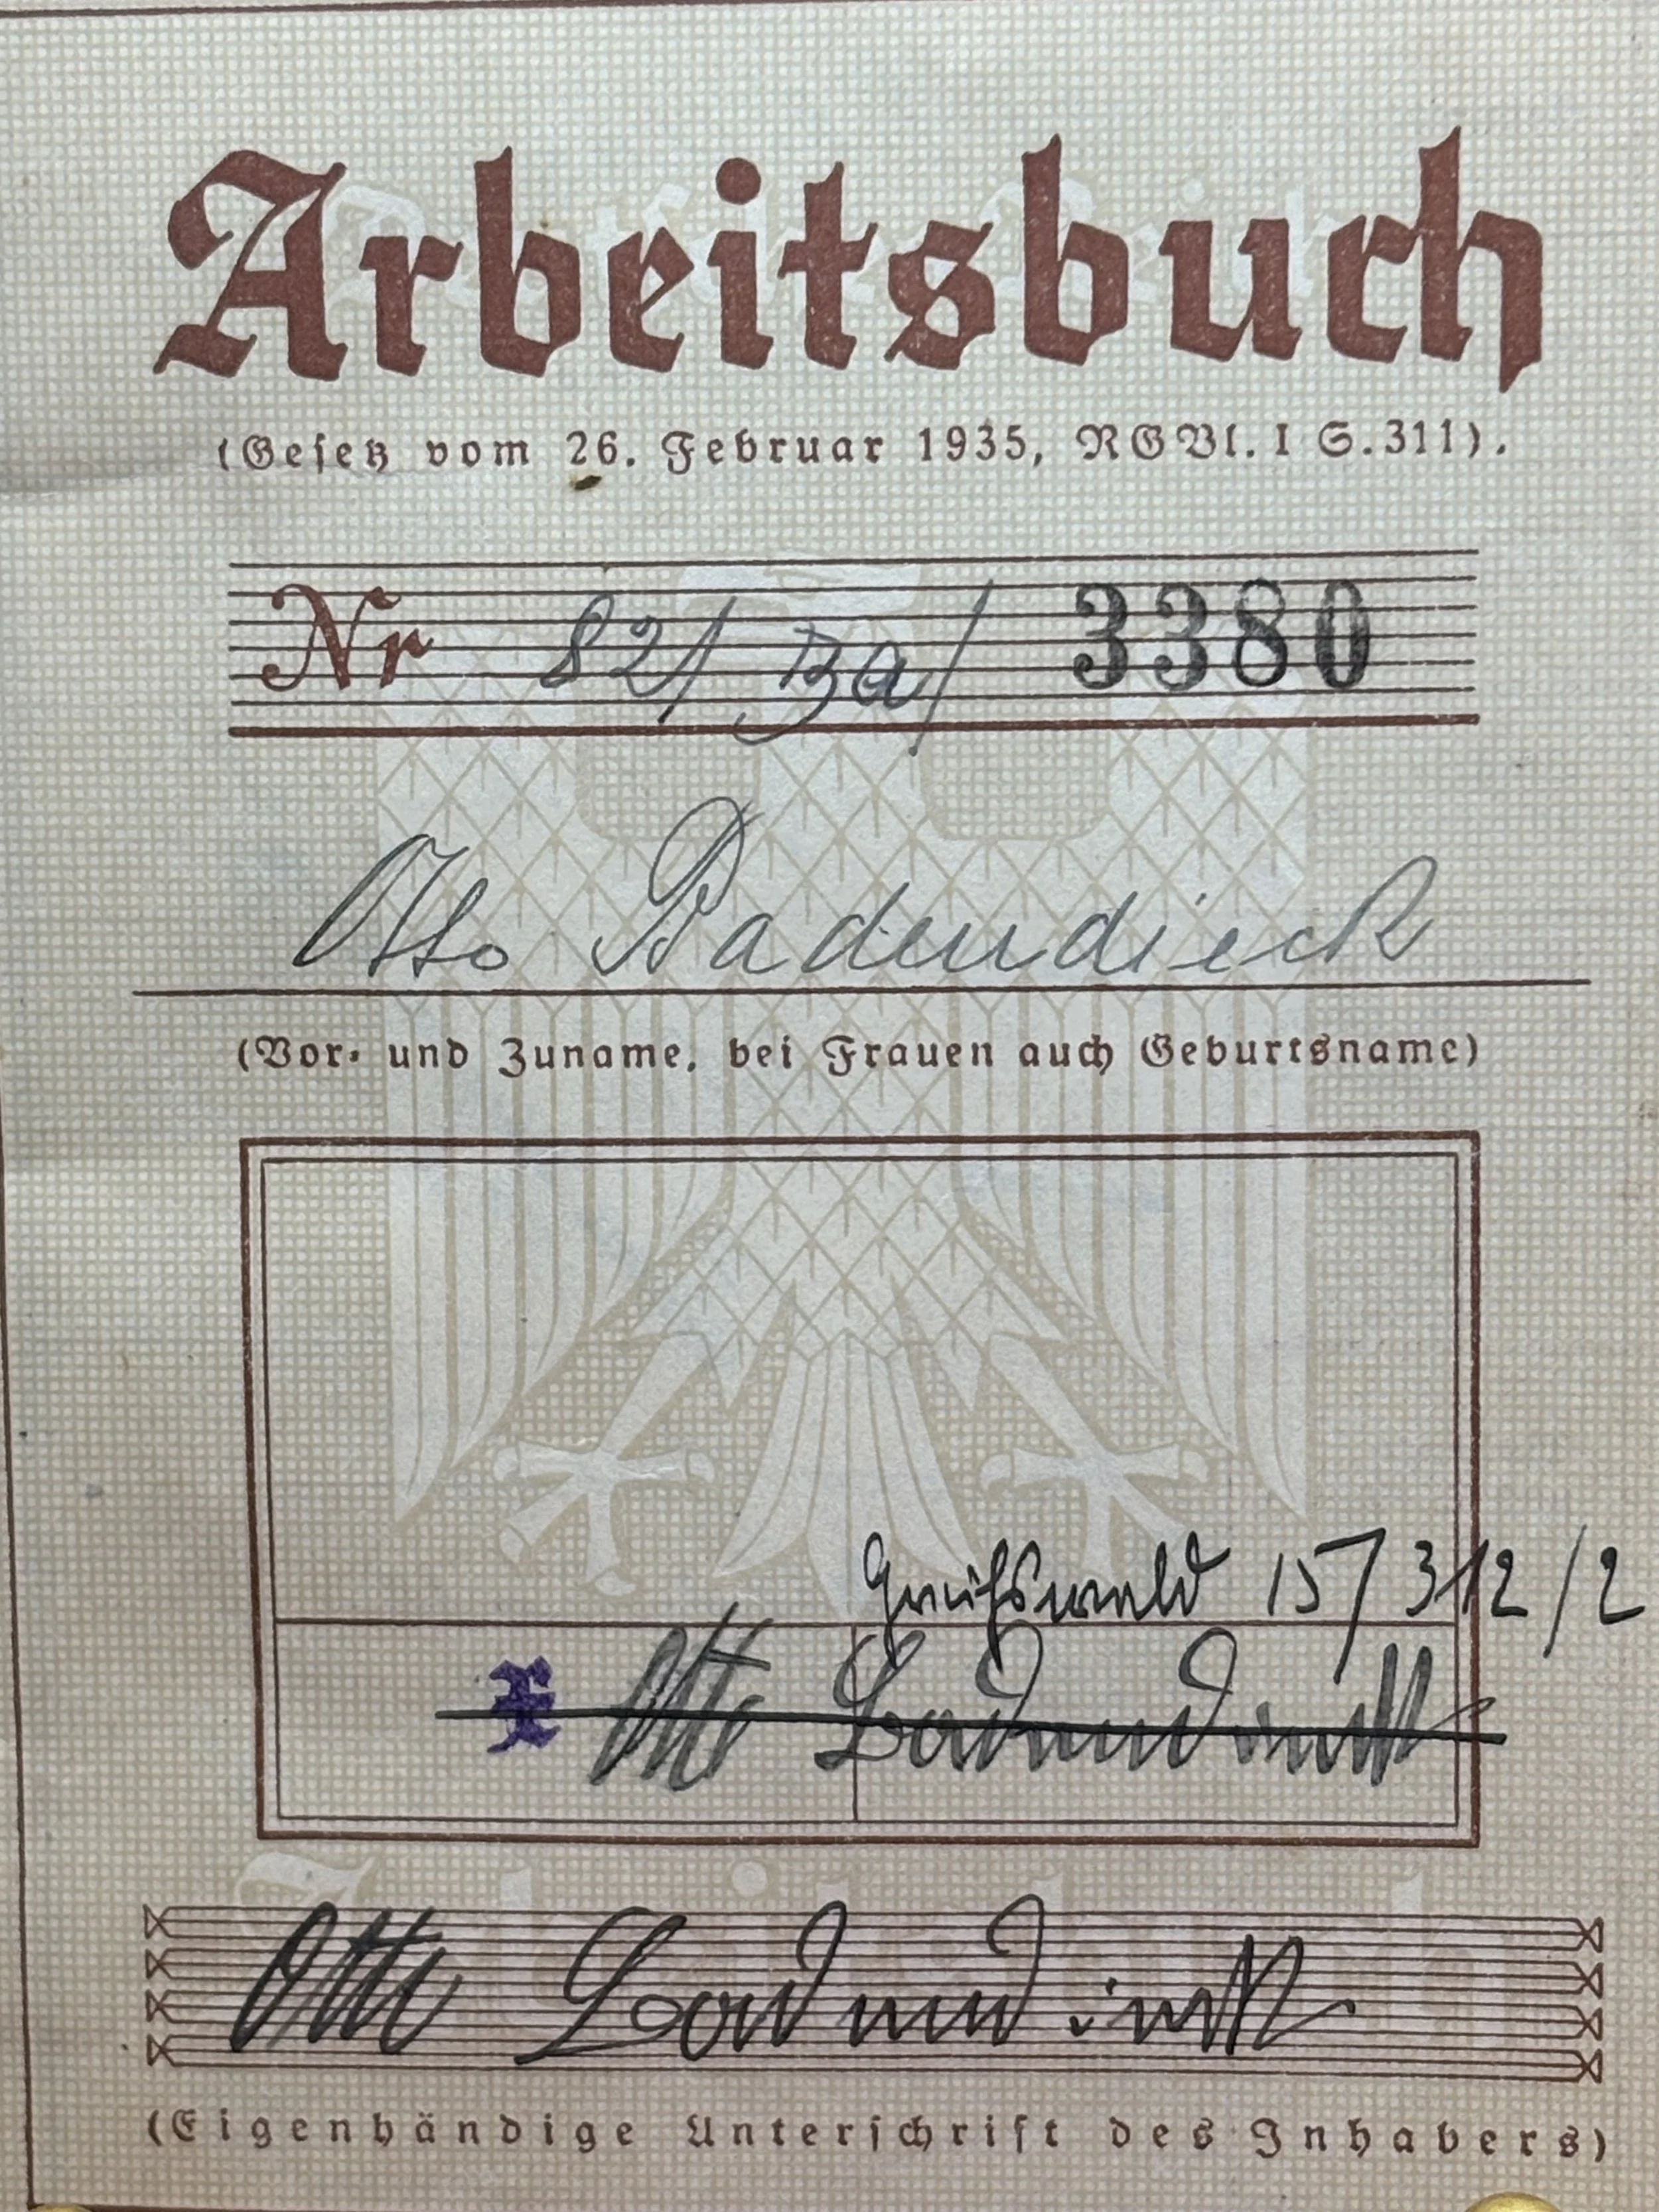 Arbeitsbuch
(Gesetz vom 26. Februar 1935, RGBl. I S. 311).
Nr 82/Ba/ 3380
Otto Badendieck
(Vor- und Zuname, bei Frauen auch Geburtsname)
Greifswald 15/312/2
Otto Badendieck
Otto Badendieck
(Eigenhändige Unterschrift des Inhabers)